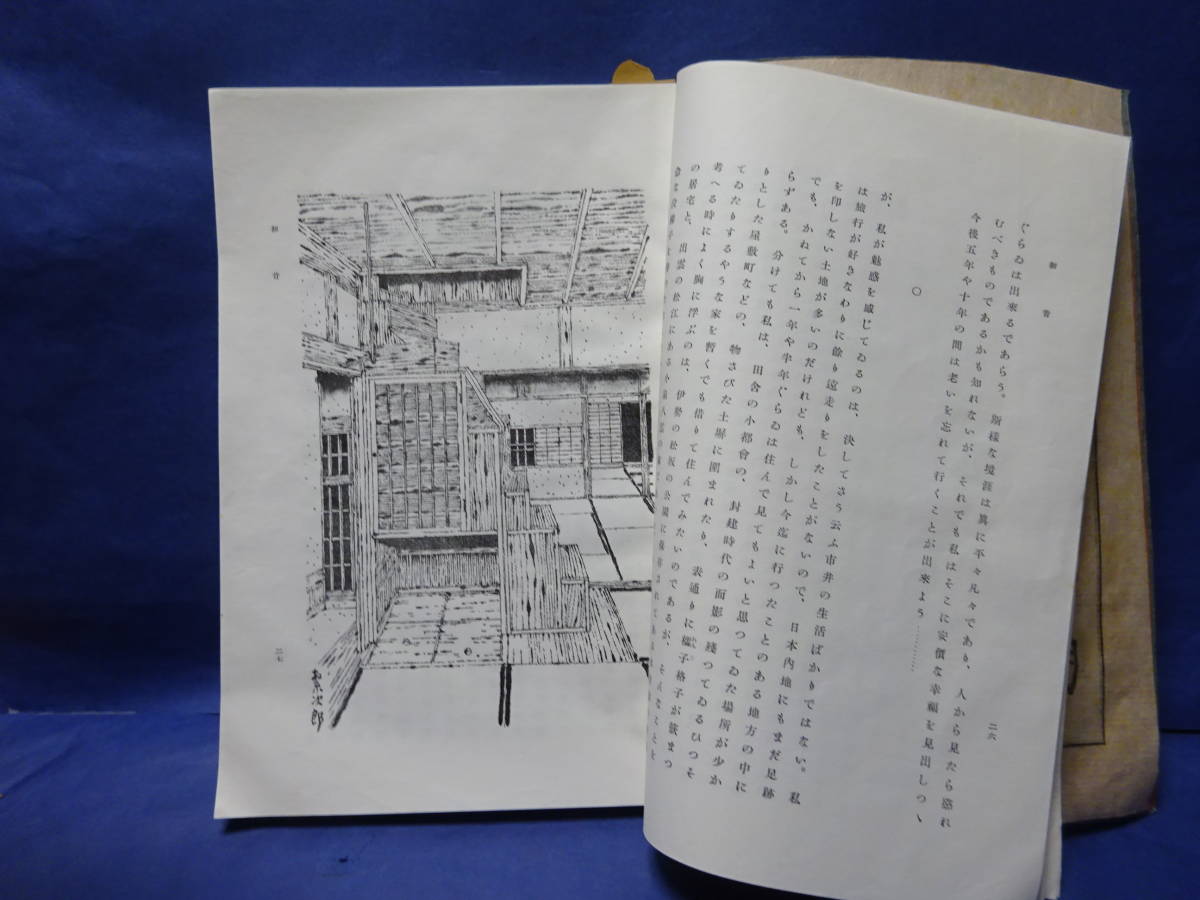 初昔
二六
ぐらゐは出來るであらう。斯樣な境涯は眞に平々凡々であり、人から見たら憐れ
むべきものであるかも知れないが、それでも私はそこに安價な幸福を見出しつゝ
今後五年や十年の間は老いを忘れて行くことが出來よう…………
○
が、私が魅惑を感じてゐるのは、決してさう云ふ市井の生活ばかりではない。私
は旅行が好きなわりに餘り遠走りをしたことがないので、日本内地にもまだ足跡
を印しない土地が多いのだけれども、しかし今迄に行つたことのある地方の中に
でも、かねてから一年や半年ぐらゐは住んで見てもよいと思つてゐた場所が少か
らずある。分けても私は、田舍の小都會の、封建時代の面影の殘つてゐるひつそ
りとした屋敷町などの、物さびた土塀に圍まれたり、表通りに櫺子格子が嵌まつ
てゐたりするやうな家を暫くでも借りて住んでみたいのであるが、そんなことを
考へる時によく胸に浮ぶのは、伊勢の松坂の公園に保存されてある
の居宅と、出雲の松江にある小泉八雲の
初昔
二七